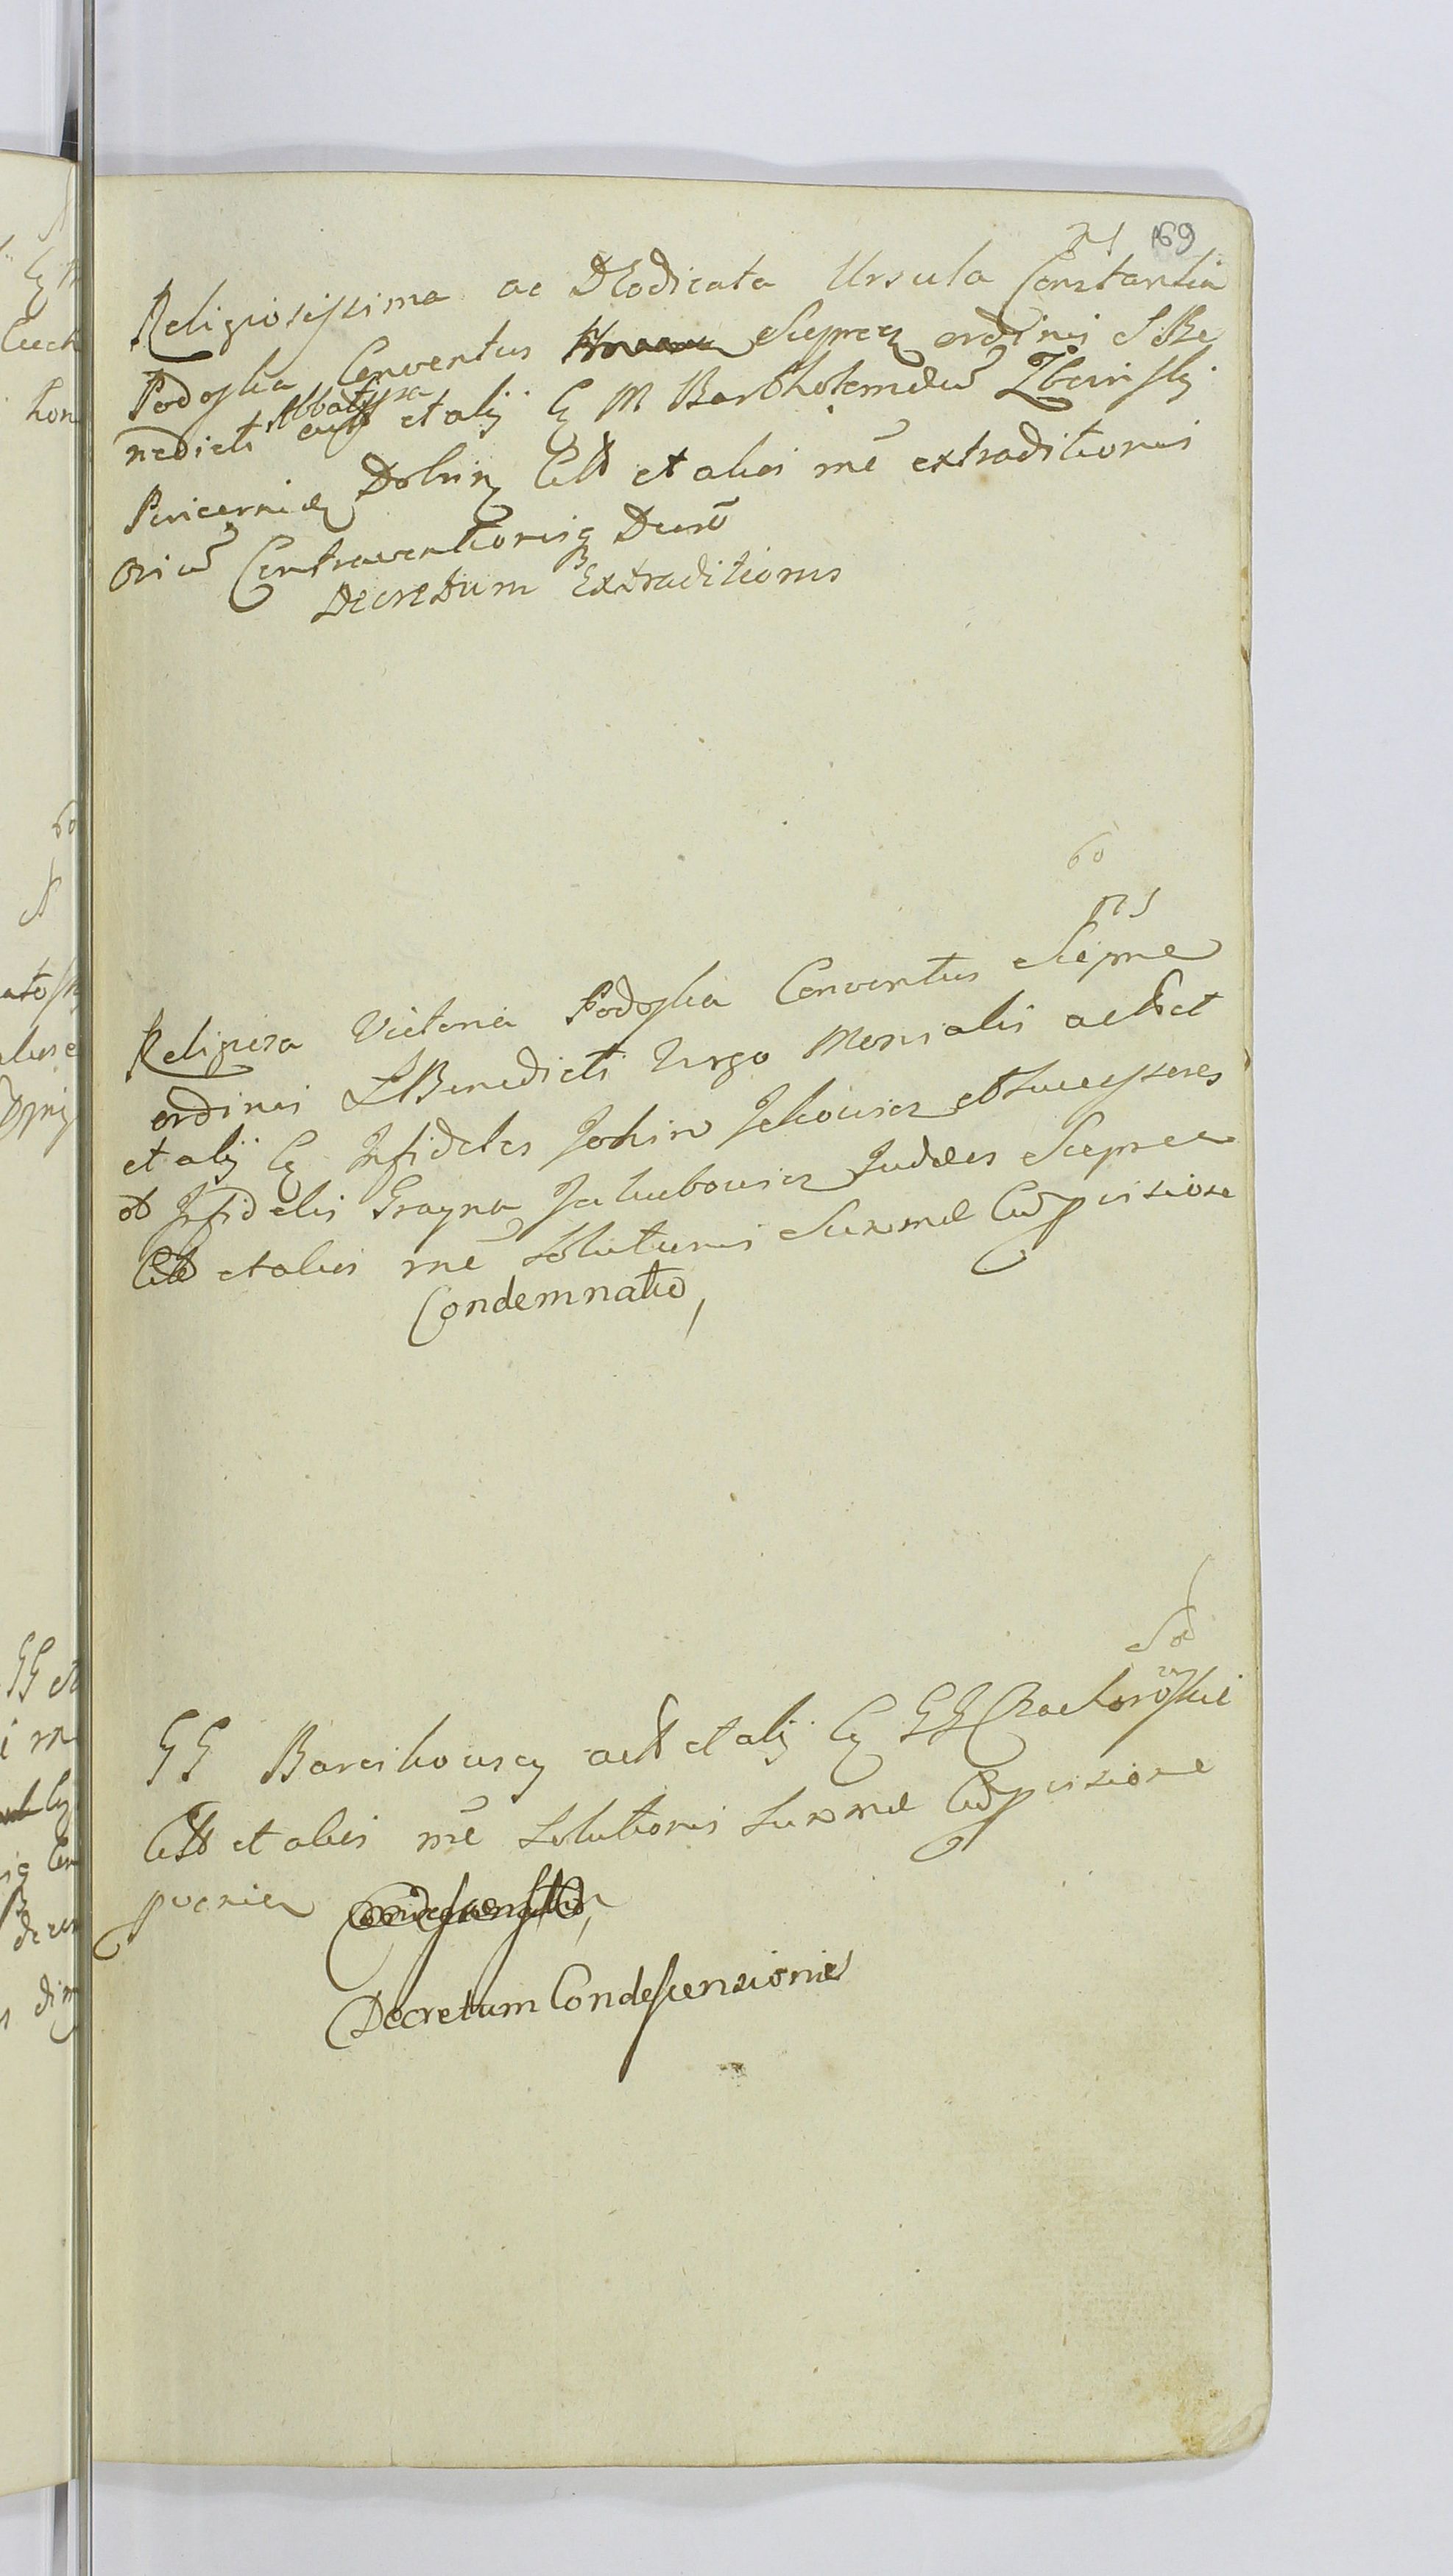 169
Religiosissima ac DEodicata Ursula Constantia
Podoska Conventus Sieprcen ordinis S Be
nedicti Abbatissa act et alij Cq M Bartholomæũ Zboinski
Pincernidem Dobrin Citt et alios rñe extraditionis
oriũ Contraventionisq Decrõ
Decretum Extraditionis
60
ns
Religiosa Victoria Podoska Conventus Sieprce
ordinis S Benedicti Virgo Monialis act et
et alij Cq Infideles Jochim Jckowicz et Successores
et Infidelis Grayna Jakubowicz Judæos Sieprcen
Citt et alios rñe Solutionis Summæ Comprisione
Condemnatio,
GG Barcikowscy act et alij Cq GG Czachorowskie
Citt et alios rñe Solutionis Summæ Comprisione
poenien
Decretum Condescensionis